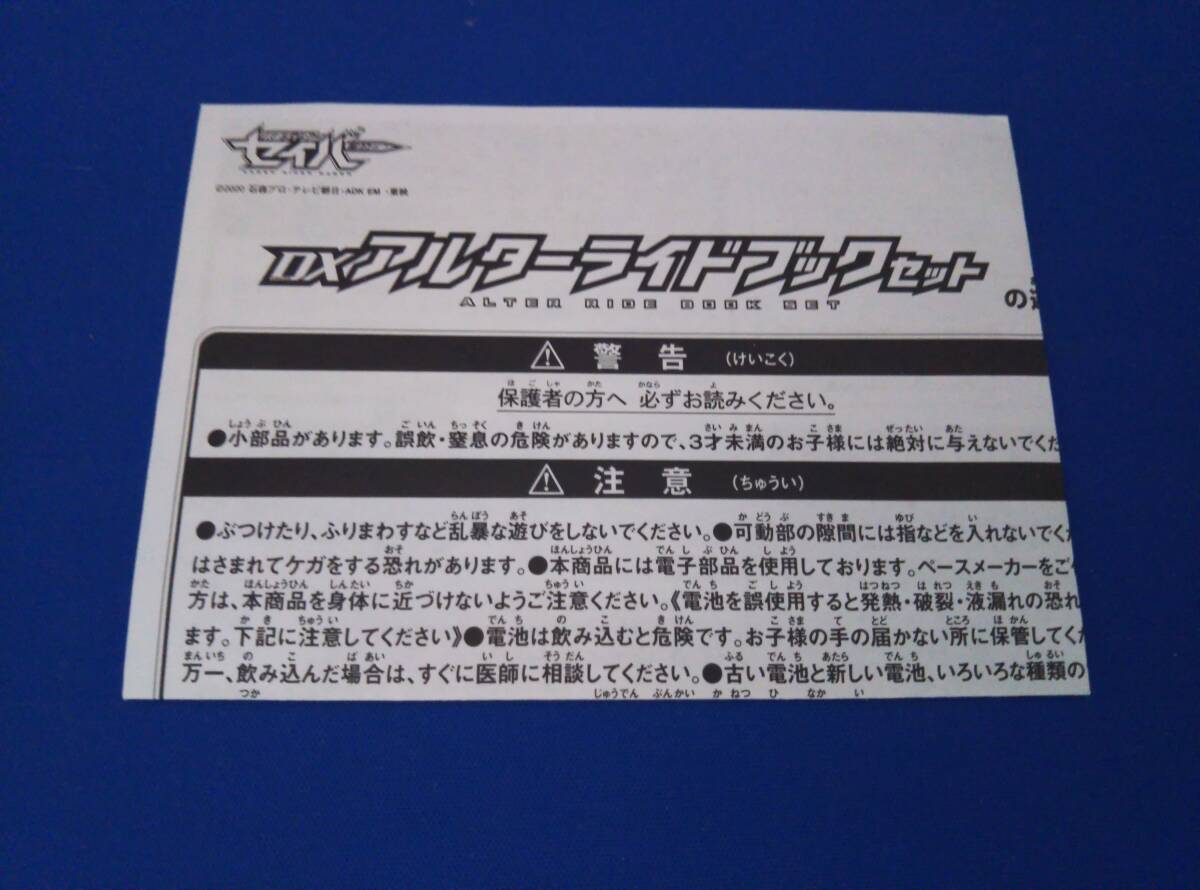 セイバー
©2020 石森プロ・テレビ朝日・ADK EM・東映
DXアルターライドブックセット
ALTER RIDE BOOK SET
の
⚠ 警告 (けいこく)
保護者の方へ 必ずお読みください。
●小部品があります。誤飲・窒息の危険がありますので、3才未満のお子様には絶対に与えないでくだ
⚠ 注意 (ちゅうい)
●ぶつけたり、ふりまわすなど乱暴な遊びをしないでください。●可動部の隙間には指などを入れないでく
はさまれてケガをする恐れがあります。●本商品には電子部品を使用しております。ペースメーカーをご
方は、本商品を身体に近づけないようご注意ください。《電池を誤使用すると発熱・破裂・液漏れの恐れ
ます。下記に注意してください》●電池は飲み込むと危険です。お子様の手の届かない所に保管してく
万一、飲み込んだ場合は、すぐに医師に相談してください。●古い電池と新しい電池、いろいろな種類の
つか じゅうでん ぶんかい かねつ ひ なか い